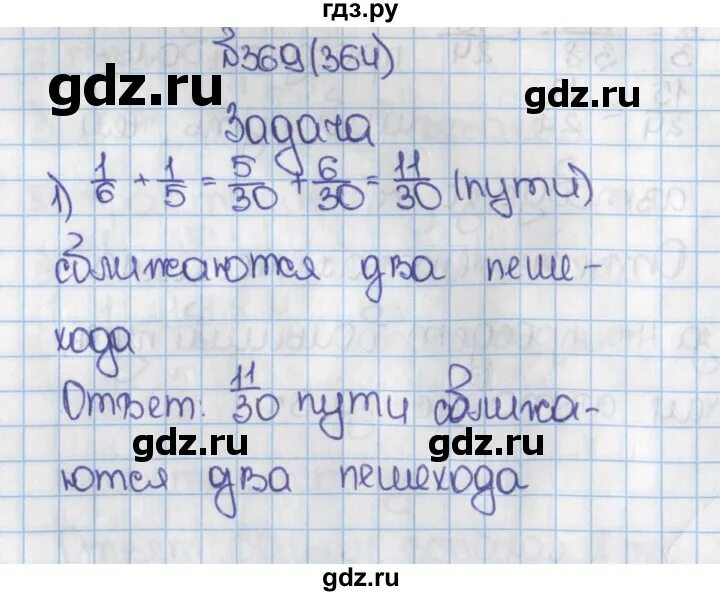 гдз.ру
№369(364)
gdz.ru
gdz.ru
Задача
1) 1/6 + 1/5 = 5/30 + 6/30 = 11/30 (пути)
сближаются два пеше-
хода
Ответ: 11/30 пути сближа-
gdz.ru
gdz.ru
ются два пешехода
gdz.ru